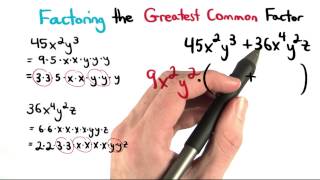 Factoring the Greatest Common Factor
45x²y³
= 9·5·x·x·y·y·y
= 3·3·5·x·x·y·y·y
36x⁴y²z
= 6·6·x·x·x·x·y·y·z
= 2·2·3·3·x·x·x·x·y·y·z
45x²y³ + 36x⁴y²z
9x²y²·( + )